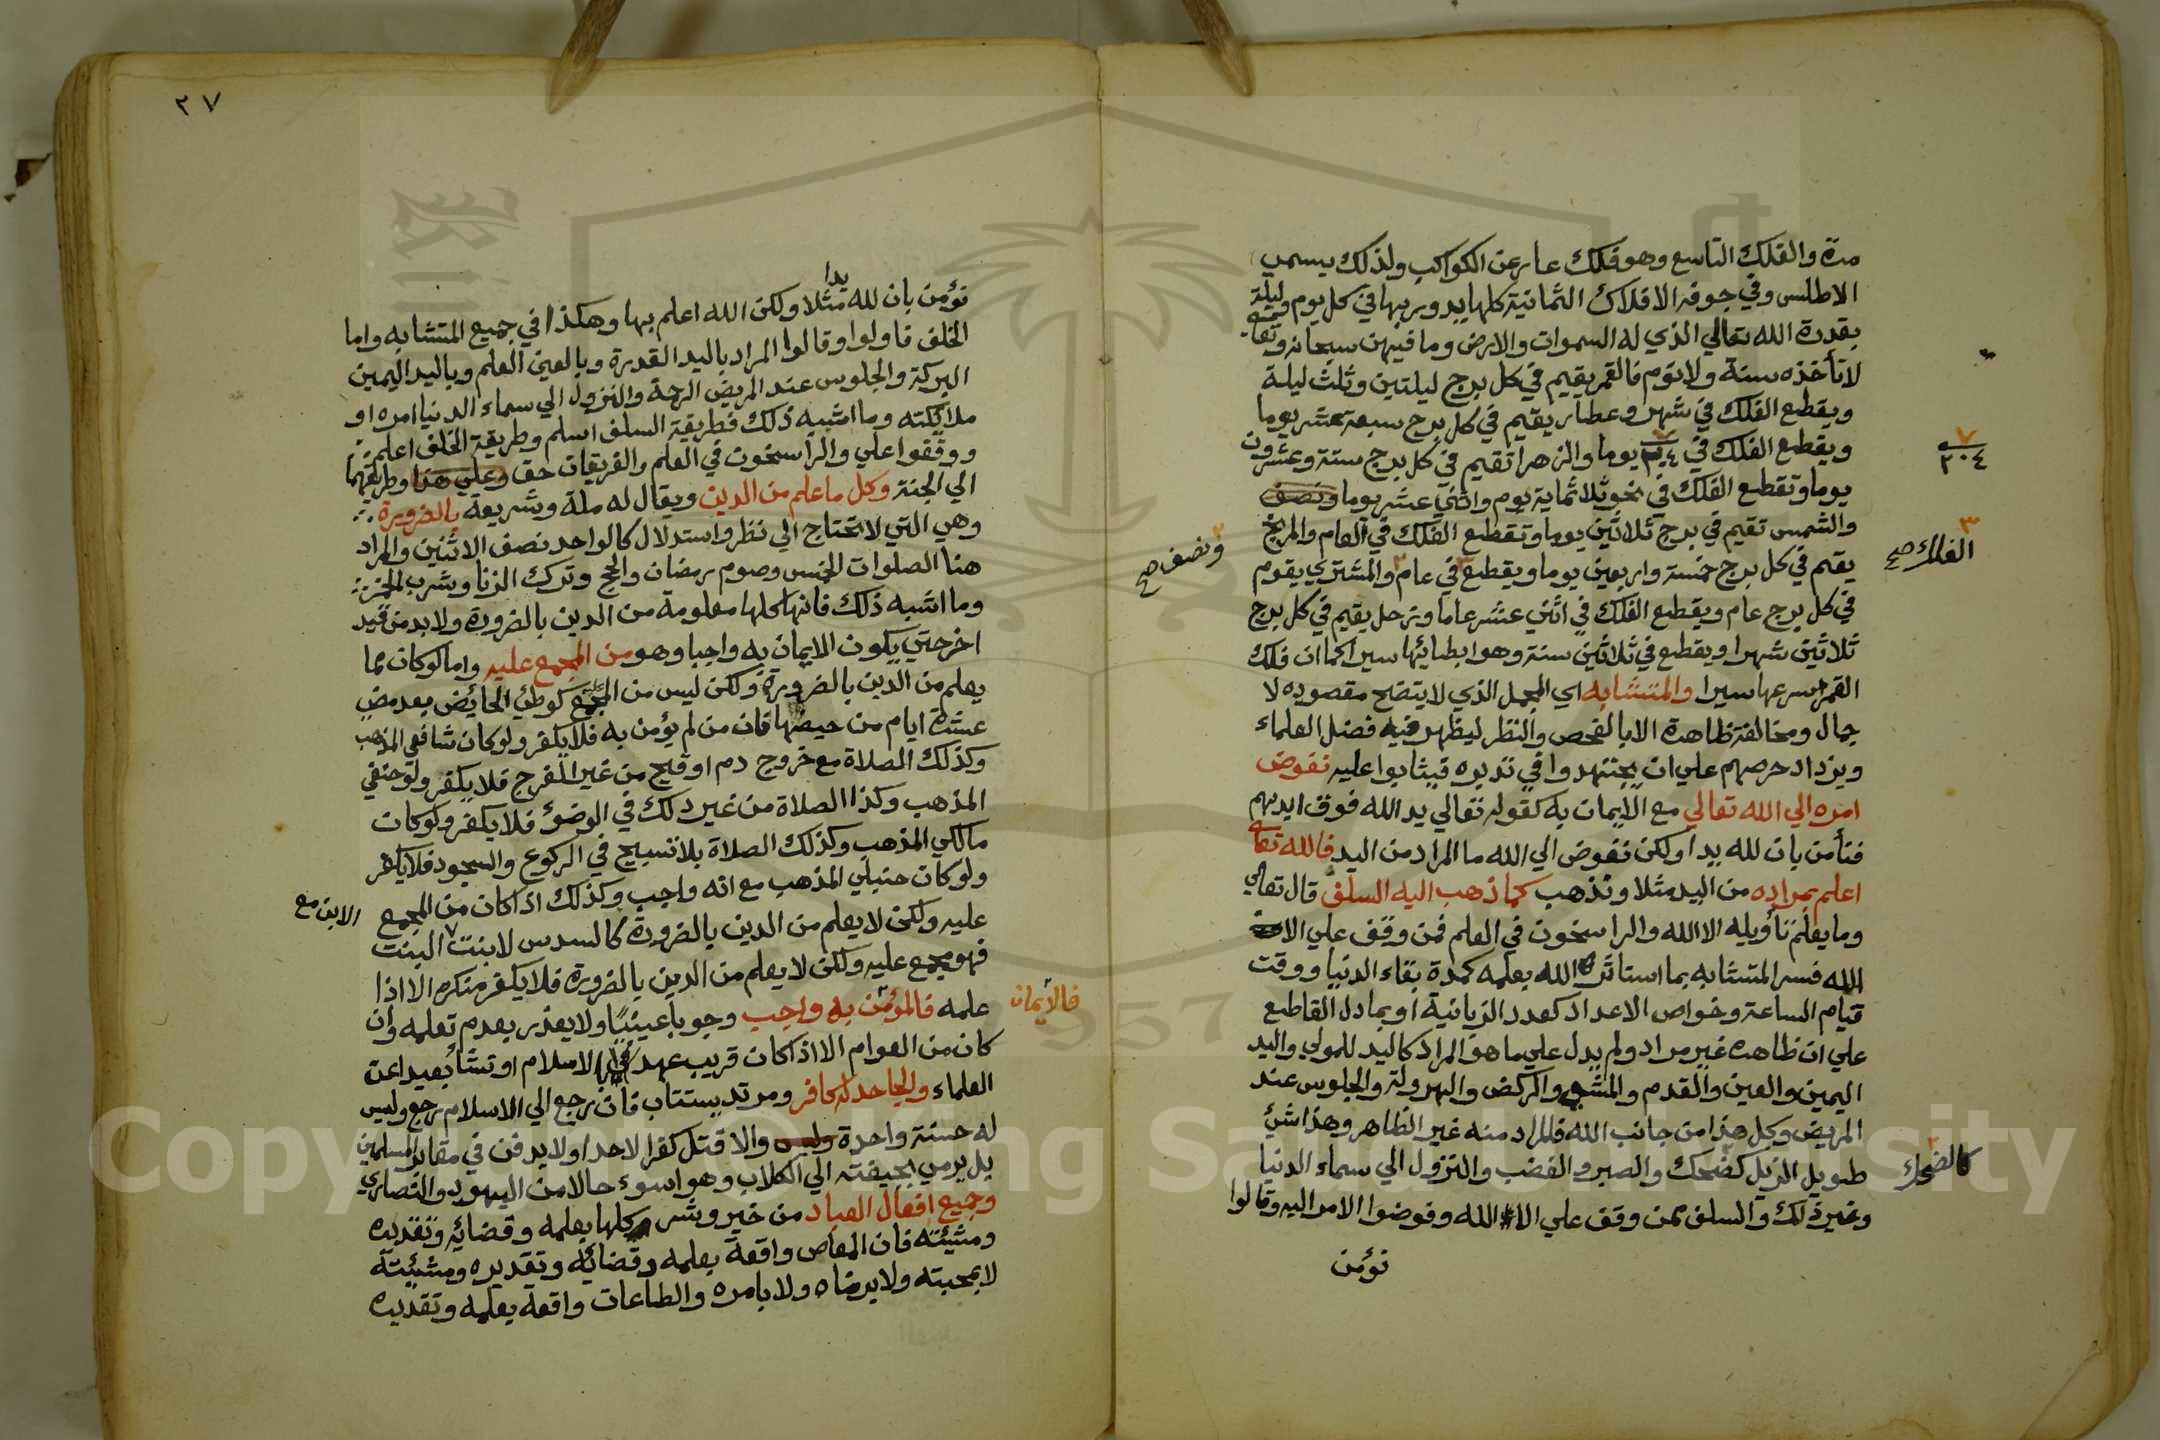 مرة والفلك التاسع وهو فلك عار عن الكواكب ولذلك يسمي
الاطلس وفي جوفه الافلاك الثمانية كلها يدور بها في كل يوم وليلة
بقدرة الله تعالي الذي له السموات والارض وما فيهن سبحانه وتعالي
لا تأخذه سنة ولا نوم فالقمر يقيم في كل برج ليلتين وثلث ليلة
ويقطع الفلك في شهر وعطارد يقيم في كل برج سبعة عشر يوما
ويقطع الفلك في ٢٠٤ يوما والزهرا تقيم في كل برج ستة وعشرون
٢٠٤
يوما وتقطع الفلك في نحو ثلاثماية يوم واثني عشر يوما ونصف
والشمس تقيم في برج ثلاثين يوما وتقطع الفلك في العام والمريخ
الفلك صح
ونصف صح
يقيم في كل برج خمسة واربعين يوما ويقطع في عام والمشتري يقوم
في كل برج عام ويقطع الفلك في اثني عشر عاما وزحل يقيم في كل برج
ثلاثين شهرا ويقطع في ثلاثين سنة وهو ابطائها سيرا كما ان فلك
القمر اسرعها سيرا والمتشابه اي المجمل الذي لا يتضح مقصوده لا
جمال ومخالفة ظاهره الا بالفحص والنظر ليظهر فيه فضل العلماء
ويزداد حرصهم علي ان يجتهدوا في تدبره فيثابوا عليه نفوض
امره الي الله تعالي مع الايمان به كقوله تعالي يد الله فوق ايديهم
فنأمن بان لله يدا ولكن نفوض الي الله ما المراد من اليد فالله تعالي
اعلم بمراده من اليد مثلا ونذهب كما ذهب اليه السلف قال تعالي
وما يعلم تأويله الا الله والراسخون في العلم فمن وقف علي الا
الله فسر المتشابه بما استاثر الله بعلمه كمدة بقاء الدنيا ووقت
قيام الساعة وخواص الاعداد كعدد الزبانية او بما دل القاطع
علي ان ظاهره غير مراد ولم يدل علي ما هو المراد كاليد للمولي واليد
اليمين والعين والقدم والمشي والركض والهرولة والجلوس عند
المريض وكل هذا من جانب الله فالمراد منه غير الظاهر وهذا شئ
طويل الذيل كضحك والصبر والغضب والنزول الي سماء الدنيا
كالضحك
وغير ذلك والسلف ممن وقف علي الا الله وفوضوا الامر اليه وقالوا
نؤمن
٢٧
نؤمن بان لله يدا مثلا ولكن الله اعلم بها وهكذا في جميع المتشابه واما
الخلف فاولوا وقالوا المراد باليد القدرة وبالعين العلم وباليد اليمين
البركة والجلوس عند المريض الرحمة والنزول الي سماء الدنيا امره او
ملائكته وما اشبه ذلك فطريقة السلف اسلم وطريقة الخلف اعلم
ووقفوا علي والراسخون في العلم والفريقان حق وعلي هذا وطريقهما
الي الجنة وكل ما علم من الدين ويقال له ملة وشريعة بالضرورة
وهي التي لا تحتاج الي نظر واستدلال كالواحد نصف الاثنين والمراد
هنا الصلوات الخمس وصوم رمضان والحج وترك الزنا وشرب الخمر
وما اشبه ذلك فانها كلها معلومة من الدين بالضرورة ولا بد من قيد
اخر حتي يكون الايمان به واجبا وهو من المجمع عليه واما لو كان مما
يعلم من الدين بالضرورة ولكن ليس من المجمع كوطئ الحائض بعد مضي
عشرة ايام من حيضها فان من لم يؤمن به فلا يكفر ولو كان شافعي المذهب
وكذلك الصلاة مع خروج دم او قيح من غير المفرج فلا يكفر ولو حنفي
المذهب وكذا الصلاة من غير دلك في الوضؤ فلا يكفر ولو كان
مالكي المذهب وكذلك الصلاة بلا تسبيح في الركوع والسجود فلا يكفر
ولو كان حنبلي المذهب مع انه واجب وكذلك اذا كان من المجمع
عليه ولكن لا يعلم من الدين بالضرورة كالسدس لابنت البنت
الابن مع
فهو مجمع عليه ولكن لا يعلم من الدين بالضرورة فلا يكفر منكره الا اذا
علمه فالمؤمن به واجب وجوبا عينيا ولا يعذر بعدم تعلمه وان
فالأيمان
كان من العوام الا اذا كان قريب عهد الاسلام او نشأ بعيدا عن
العلماء والجاحد له كافر ومرتد يستتاب فان رجع الي الاسلام رجع وليس
له حسنة واحدة والا قتل كفرا لا حدا ولا يدفن في مقابر المسلمين
بل يرمي بجيفته الي الكلاب وهو اسوء حالا من اليهود والنصاري
وجميع افعال العباد من خير وشر كلها بعلمه وقضائه وتقديره
ومشيئته فان المعاصي واقعة بعلمه وقضائه وتقديره ومشيئته
لا بمحبته ولا برضاه ولا بامره والطاعات واقعة بعلمه وتقديره
Copyright © King Saud University
1957